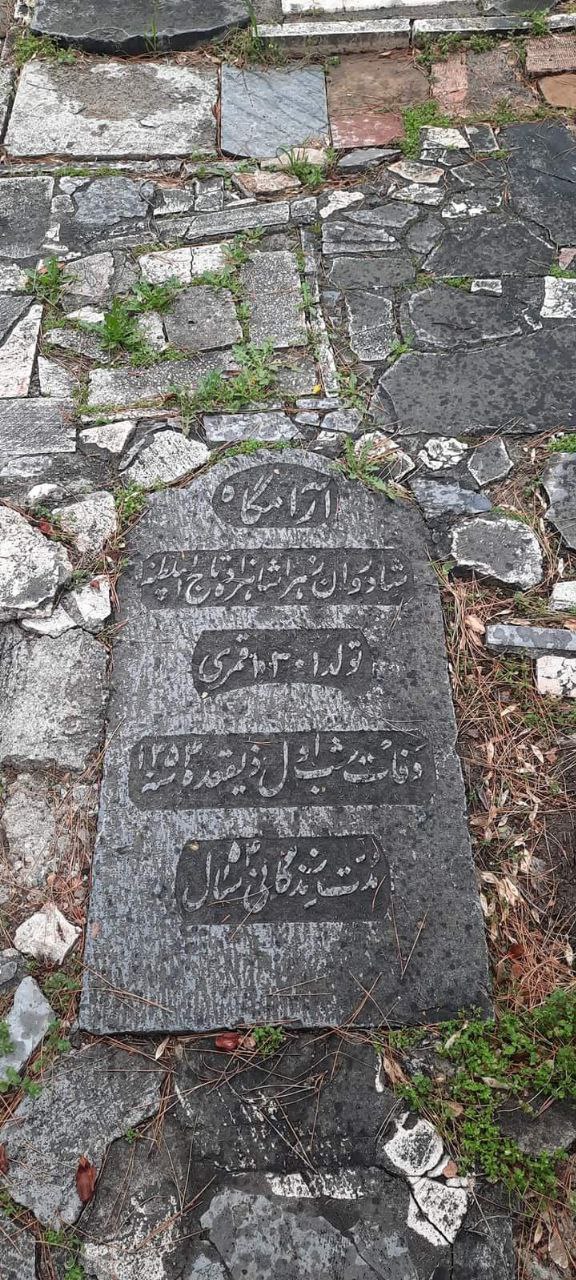 آرامگاه
شادروان زهرا شاهزاده تاج السلطنه
تولد ۱۳۰۱ قمری
وفات شب اول ذیقعده سنه ۱۳۵۴
مدت زندگانی ۵۴ سال